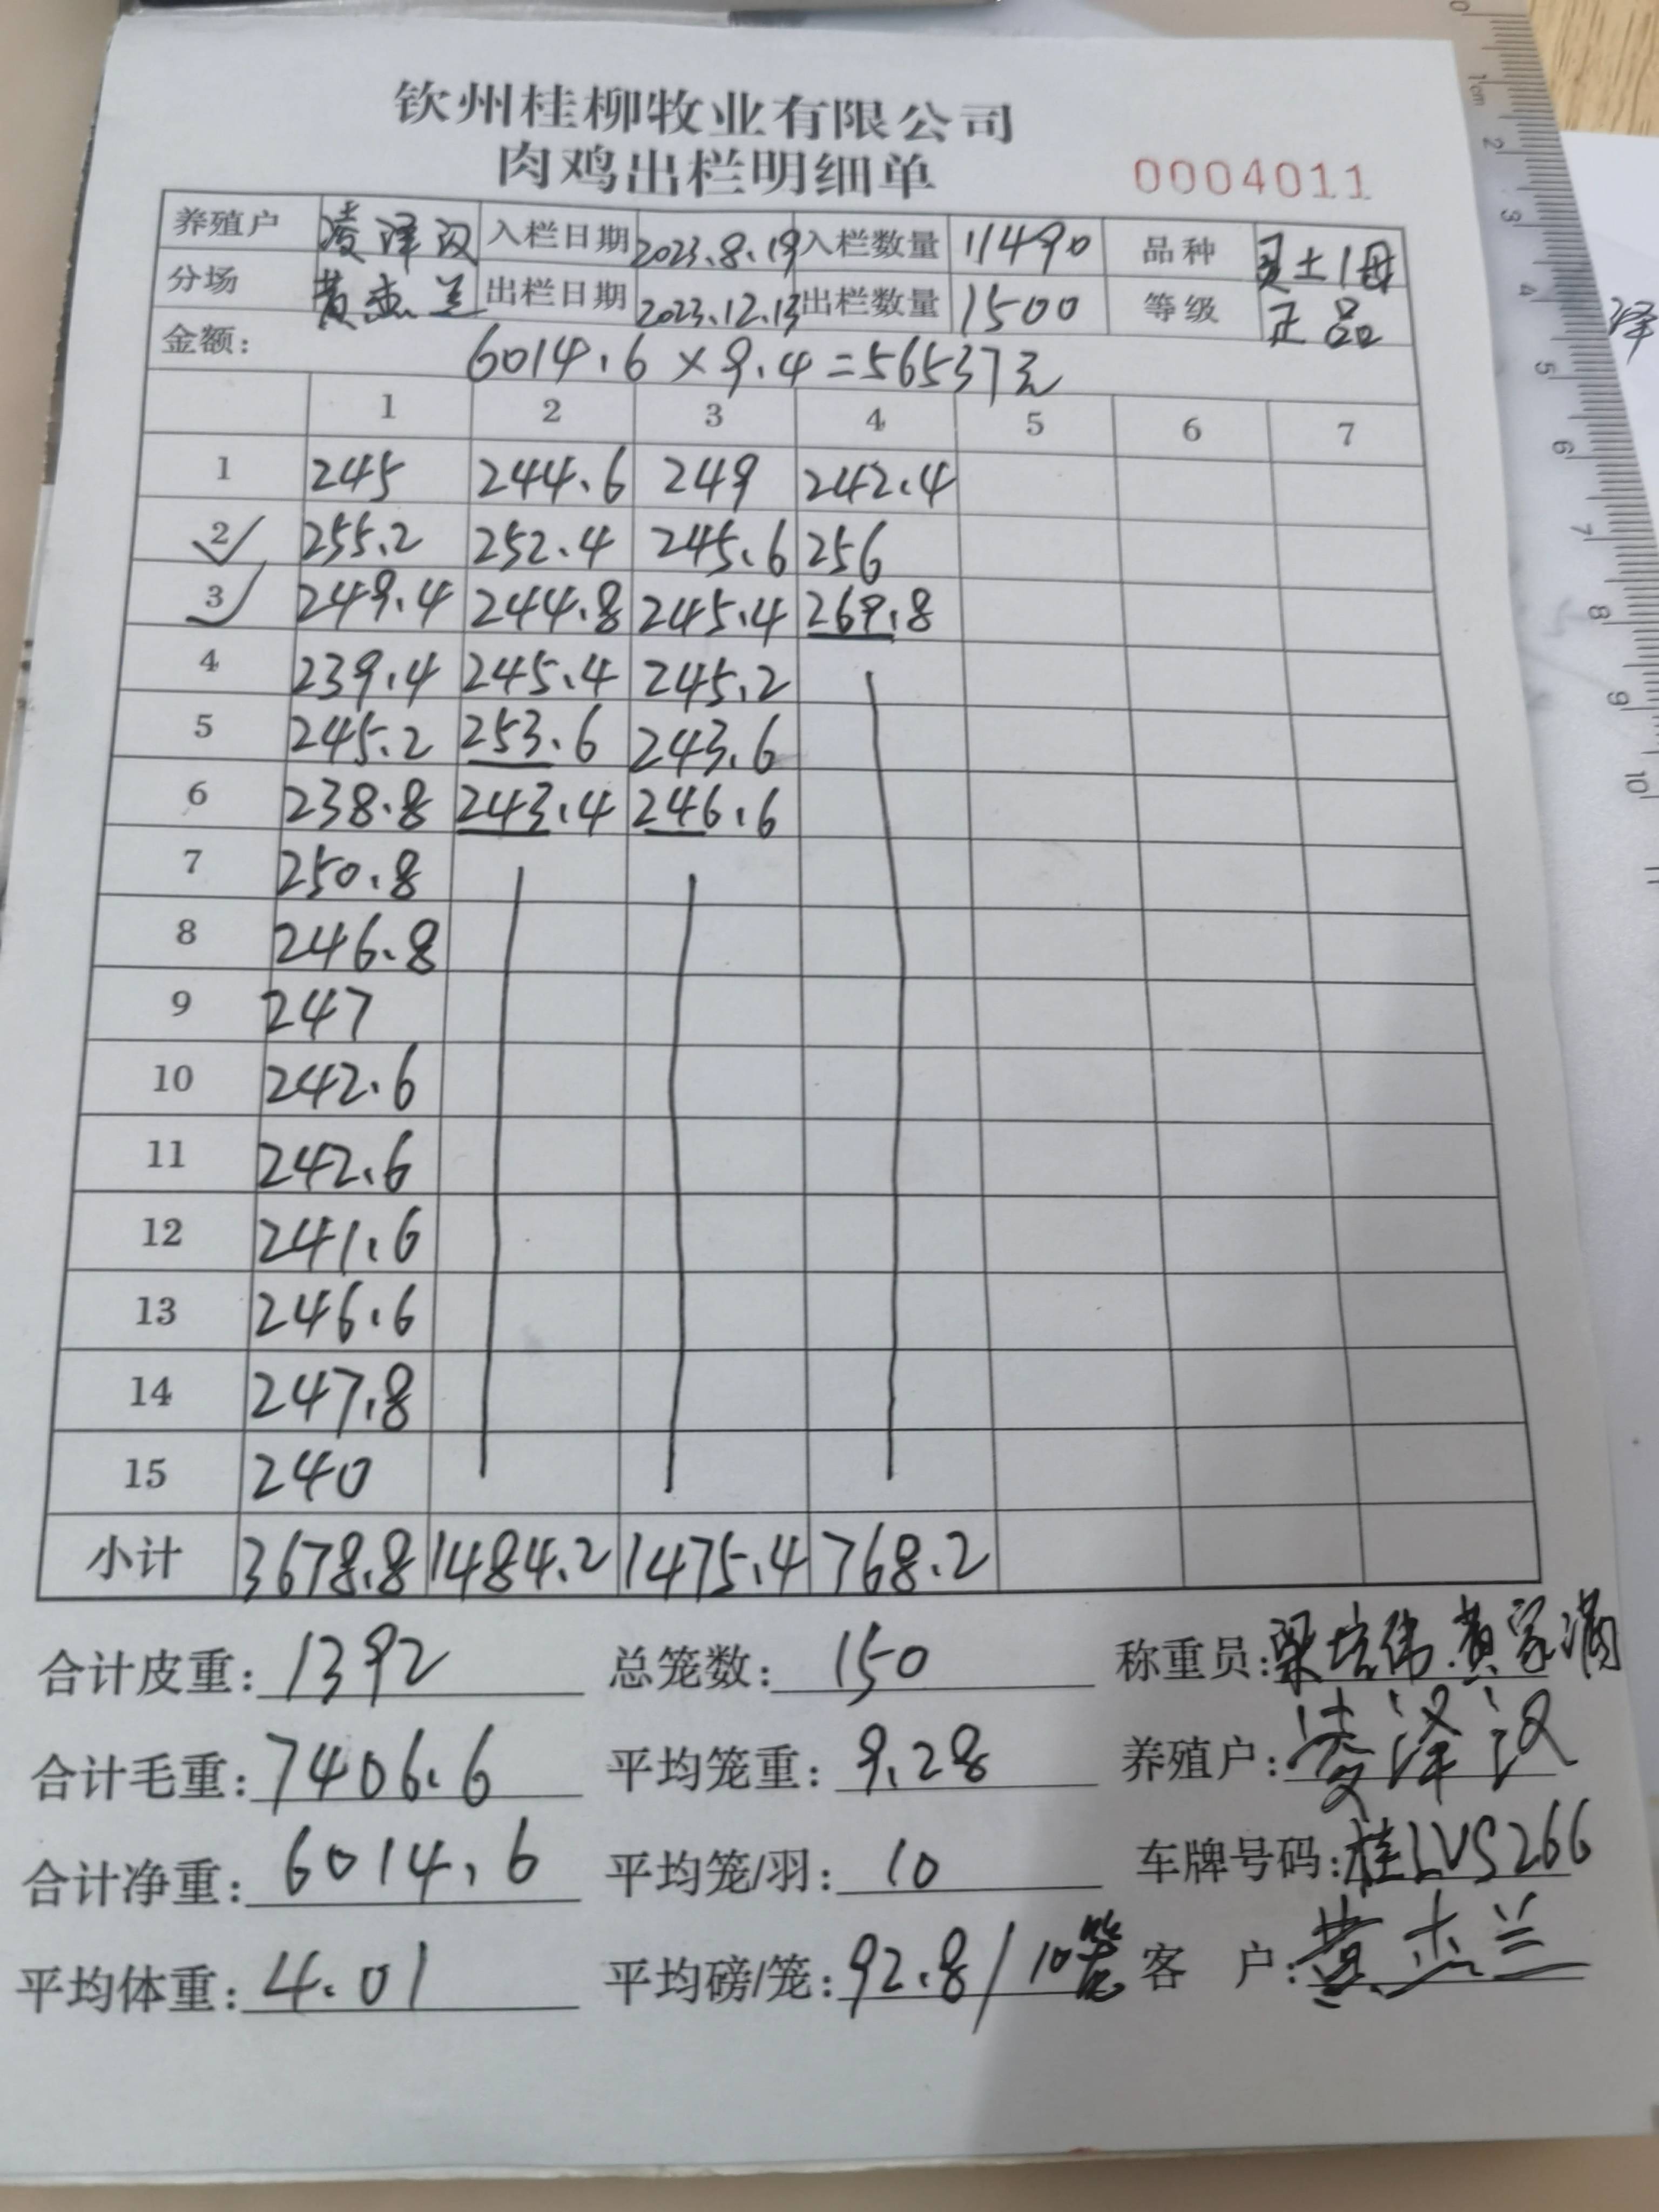 钦州桂柳牧业有限公司
肉鸡出栏明细单 0004011
养殖户 凌泽汉 入栏日期 2023.8.19 入栏数量 11490 品种 灵土1母
分场 黄杰兰 出栏日期 2023.12.13 出栏数量 1500 等级 正品
金额: 6014.6×9.4=56537元
1 2 3 4 5 6 7
1 245 244.6 249 242.4
2 255.2 252.4 245.6 256
3 249.4 244.8 245.4 269.8
4 239.4 245.4 245.2
5 245.2 253.6 243.6
6 238.8 243.4 246.6
7 250.8
8 246.8
9 247
10 242.6
11 242.6
12 241.6
13 246.6
14 247.8
15 240
小计 3678.8 1484.2 1475.4 768.2
合计皮重: 1392 总笼数: 150 称重员: 梁培伟.黄家满
合计毛重: 7406.6 平均笼重: 9.28 养殖户: 凌泽汉
合计净重: 6014.6 平均笼/羽: 10 车牌号码: 桂LVS266
平均体重: 4.01 平均磅/笼: 92.8/10笼 客 户: 黄杰兰
0 1cm 2 3 4 5 6 7 8 9 10 11
泽